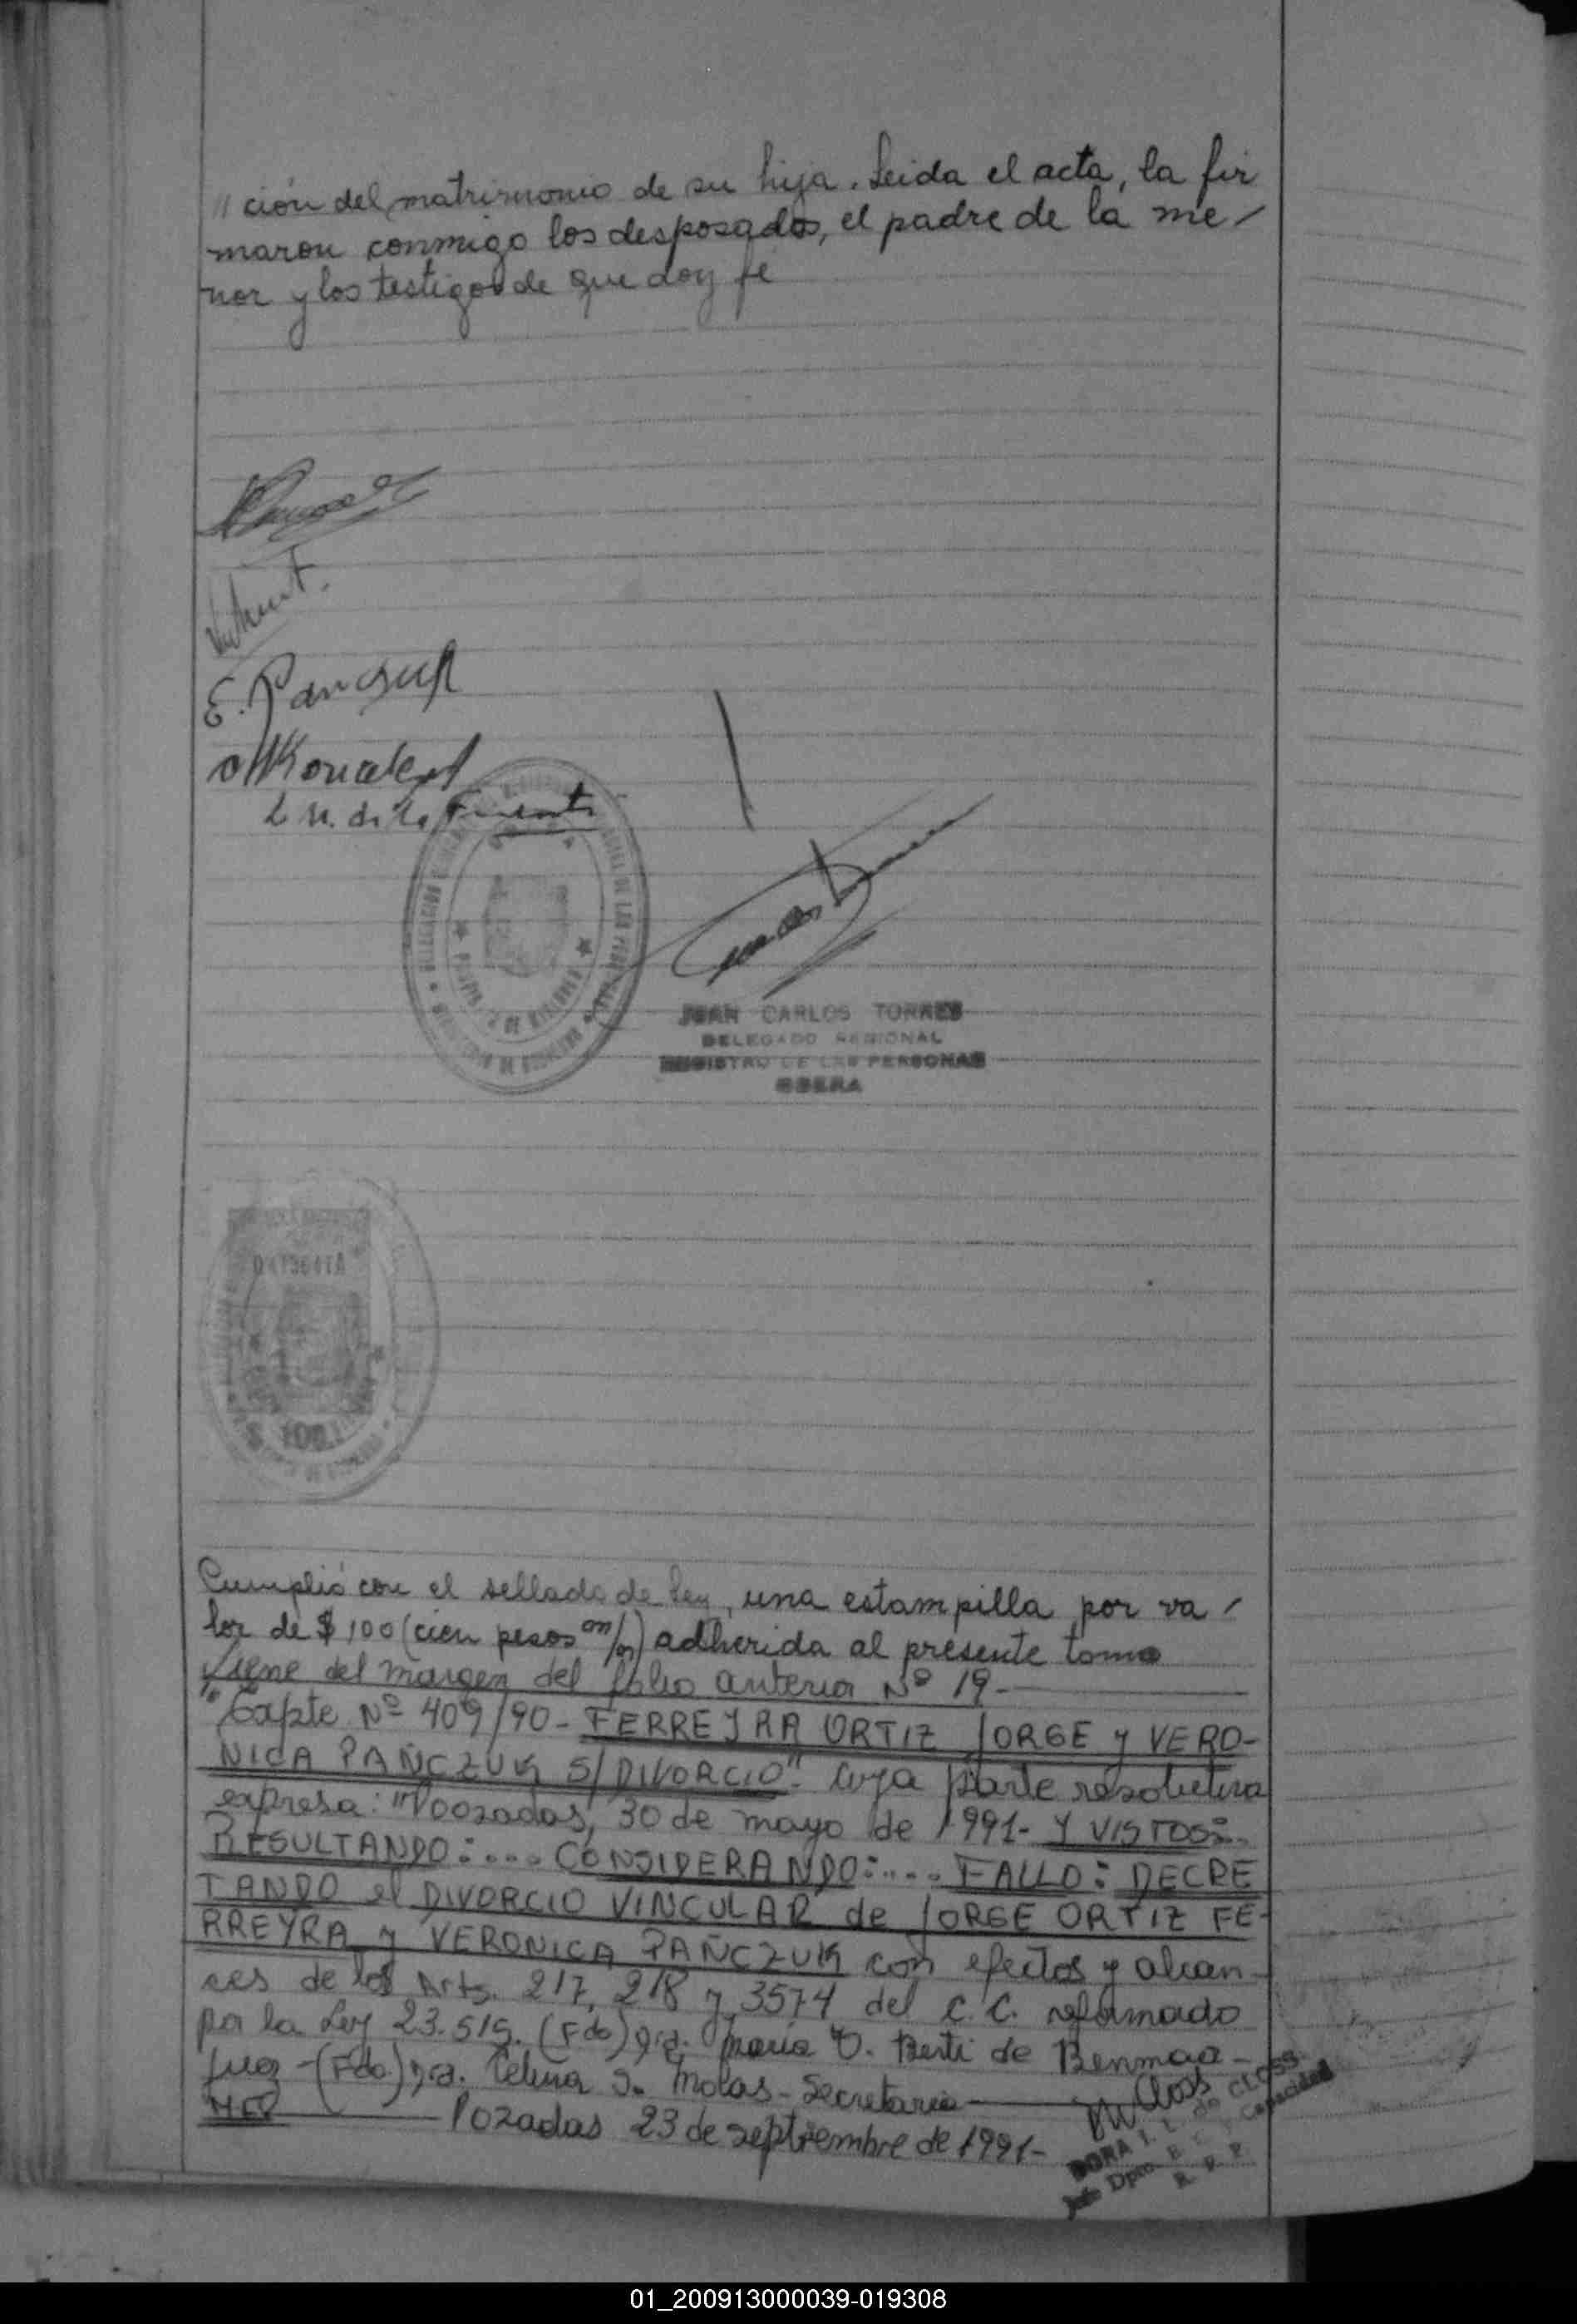 // ción del matrimonio de su hija. Leida el acta, la fir
maron conmigo los desposados, el padre de la me/
nor y los testigos de que doy fé
E. Panczuk
L. M. de la Fuente
JUAN CARLOS TORRES
DELEGADO REGIONAL
REGISTRO DE LAS PERSONAS
OBERA
PROVINCIA DE MISIONES
$ 100
Cumplió con el sellado de ley, una estampilla por va/
lor de $ 100 (cien pesos m/n) adherida al presente tomo
Viene del margen del folio anterior Nº 19.-
"Expte Nº 409/90 - FERREYRA ORTIZ JORGE y VERO-
NICA PAÑCZUK S/DIVORCIO". Cuya parte resolutiva
expresa: "Poozadas, 30 de mayo de 1991- Y VISTOS:..
RESULTANDO:.... CONSIDERANDO:.... FALLO: DECRE
TANDO el DIVORCIO VINCULAR de JORGE ORTIZ FE-
RREYRA y VERONICA PAÑCZUK con efectos y alcan-
ces de los Arts. 217, 218 y 3574 del C.C. reformado
por la Ley 23.515. (Fdo) Dra. María O. Berti de Benmaa-
Juez - (Fdo) Dra. Celina S. Molas - Secretaria
Pozadas 23 de septiembre de 1991-
DORA I. L. de CLOSS
Jefe Dpto. E. C. y Capacidad
R. P. P.
01_200913000039-019308